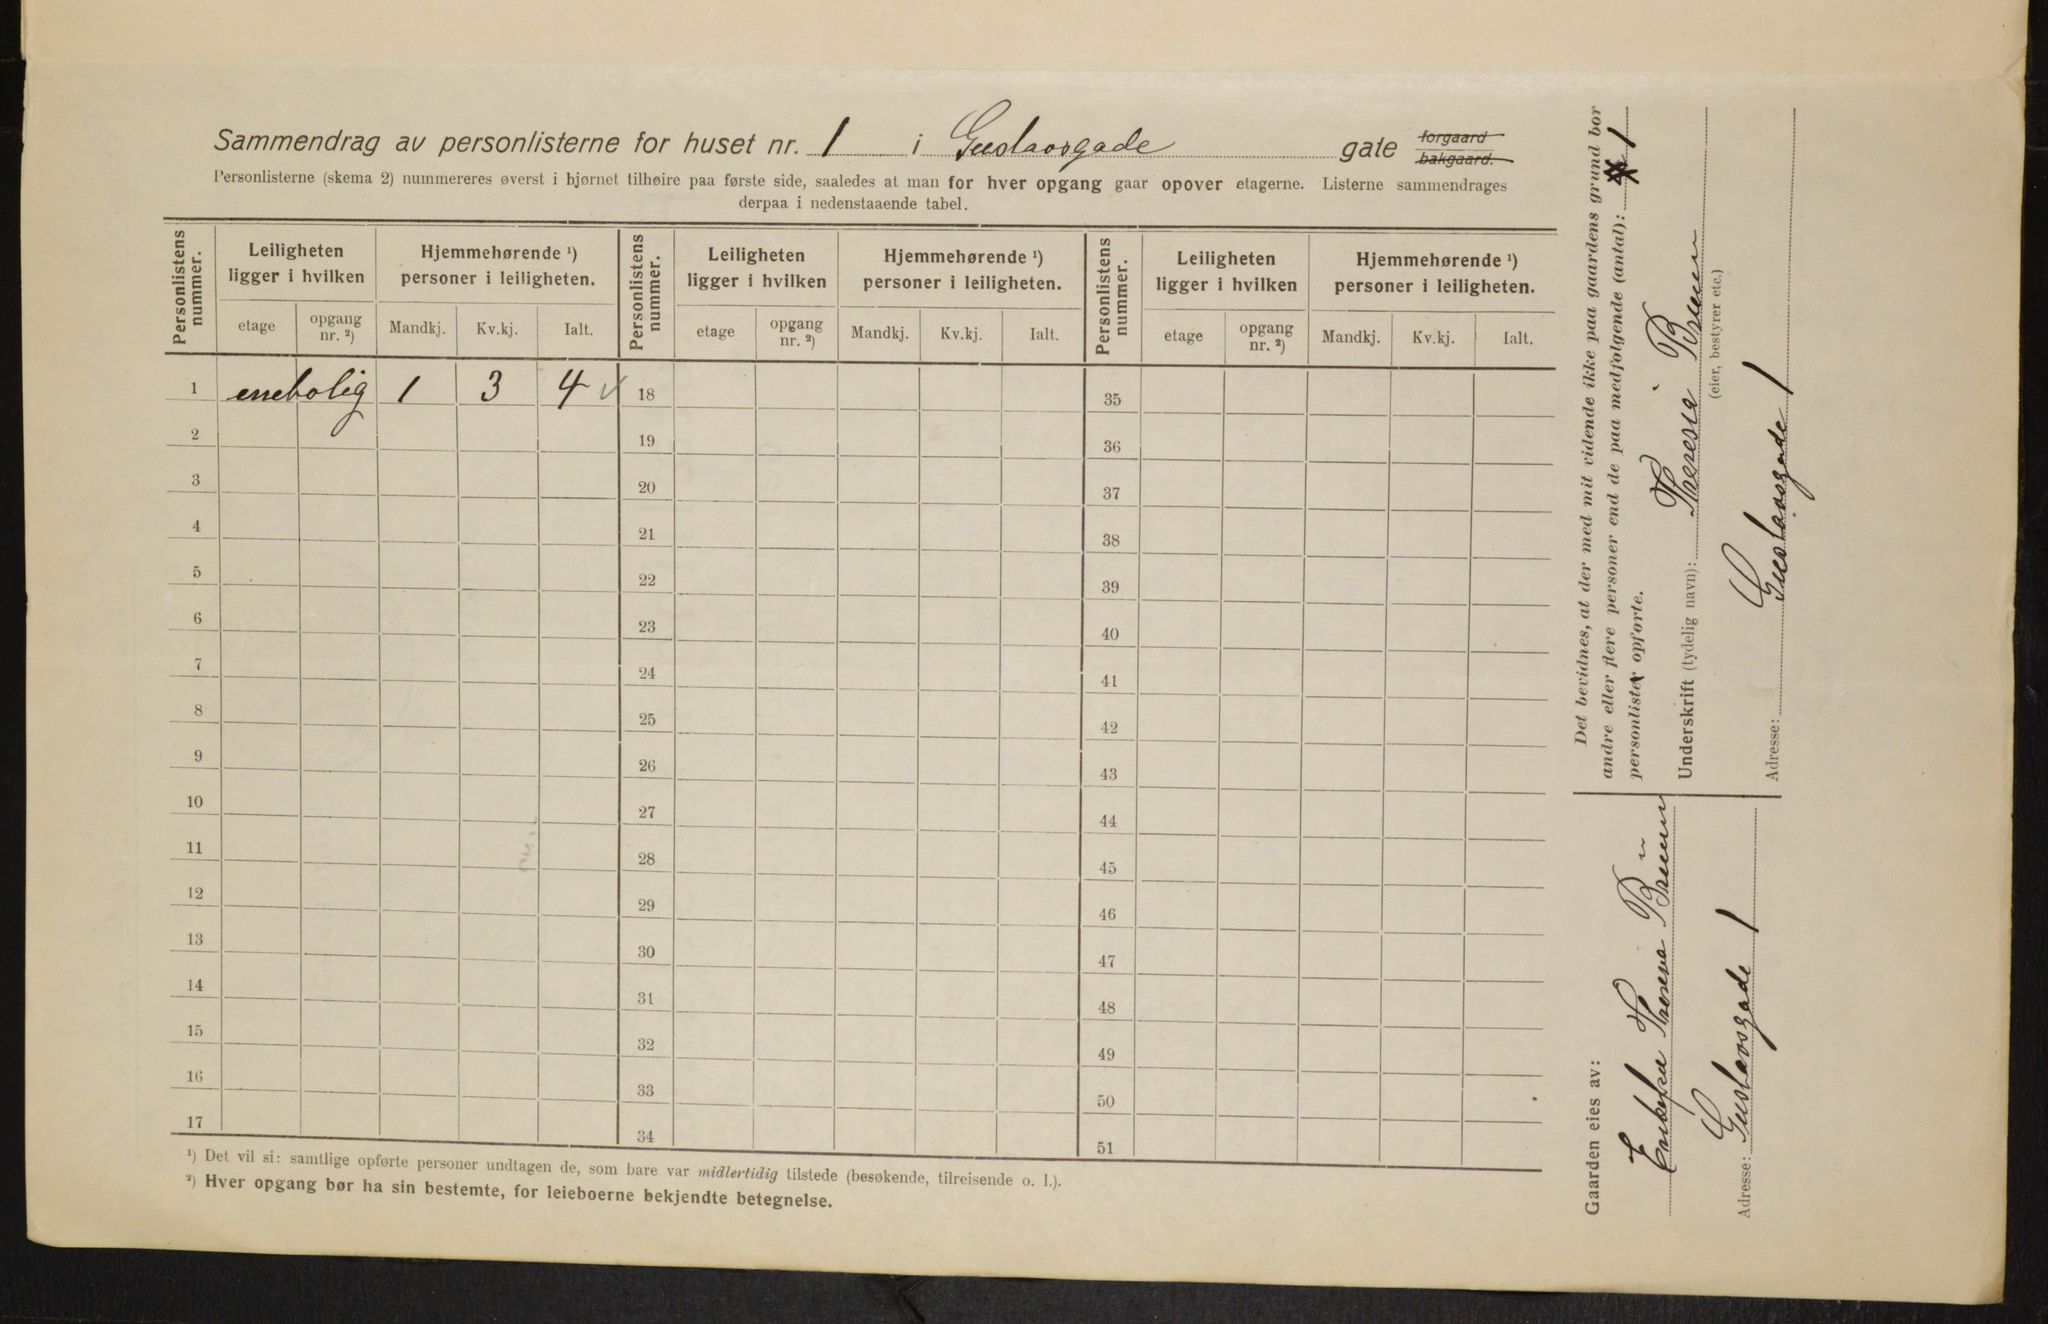 Sammendrag av personlisterne for huset nr. 1 i Gustavsgade gate forgaard bakgaard.
Personlisterne (skema 2) nummereres øverst i hjørnet tilhøire paa første side, saaledes at man for hver opgang gaar opover etagerne. Listerne sammendrages
derpaa i nedenstaaende tabel.
Personlistens nummer. Leiligheten ligger i hvilken Hjemmehørende ¹) personer i leiligheten. Personlistens nummer. Leiligheten ligger i hvilken Hjemmehørende ¹) personer i leiligheten. Personlistens nummer. Leiligheten ligger i hvilken Hjemmehørende ¹) personer i leiligheten.
etage opgang nr. ²) Mandkj. Kv.kj. Ialt. etage opgang nr. ²) Mandkj. Kv.kj. Ialt. etage opgang nr. ²) Mandkj. Kv.kj. Ialt.
1 enebolig 1 3 4 18 35
2 19 36
3 20 37
4 21 38
5 22 39
6 23 40
7 24 41
8 25 42
9 26 43
10 27 44
11 28 45
12 29 46
13 30 47
14 31 48
15 32 49
16 33 50
17 34 51
¹) Det vil si: samtlige opførte personer undtagen de, som bare var midlertidig tilstede (besøkende, tilreisende o. l.).
²) Hver opgang bør ha sin bestemte, for leieboerne bekjendte betegnelse.
Det bevidnes, at der med mit vidende ikke paa gaardens grund bor
andre eller flere personer end de paa medfølgende (antal): 1
personlister opførte.
Underskrift (tydelig navn): Theresia Bruun
(eier, bestyrer etc.)
Adresse: Gustavsgade 1
Gaarden eies av:
Theresia Bruun
Adresse: Gustavsgade 1